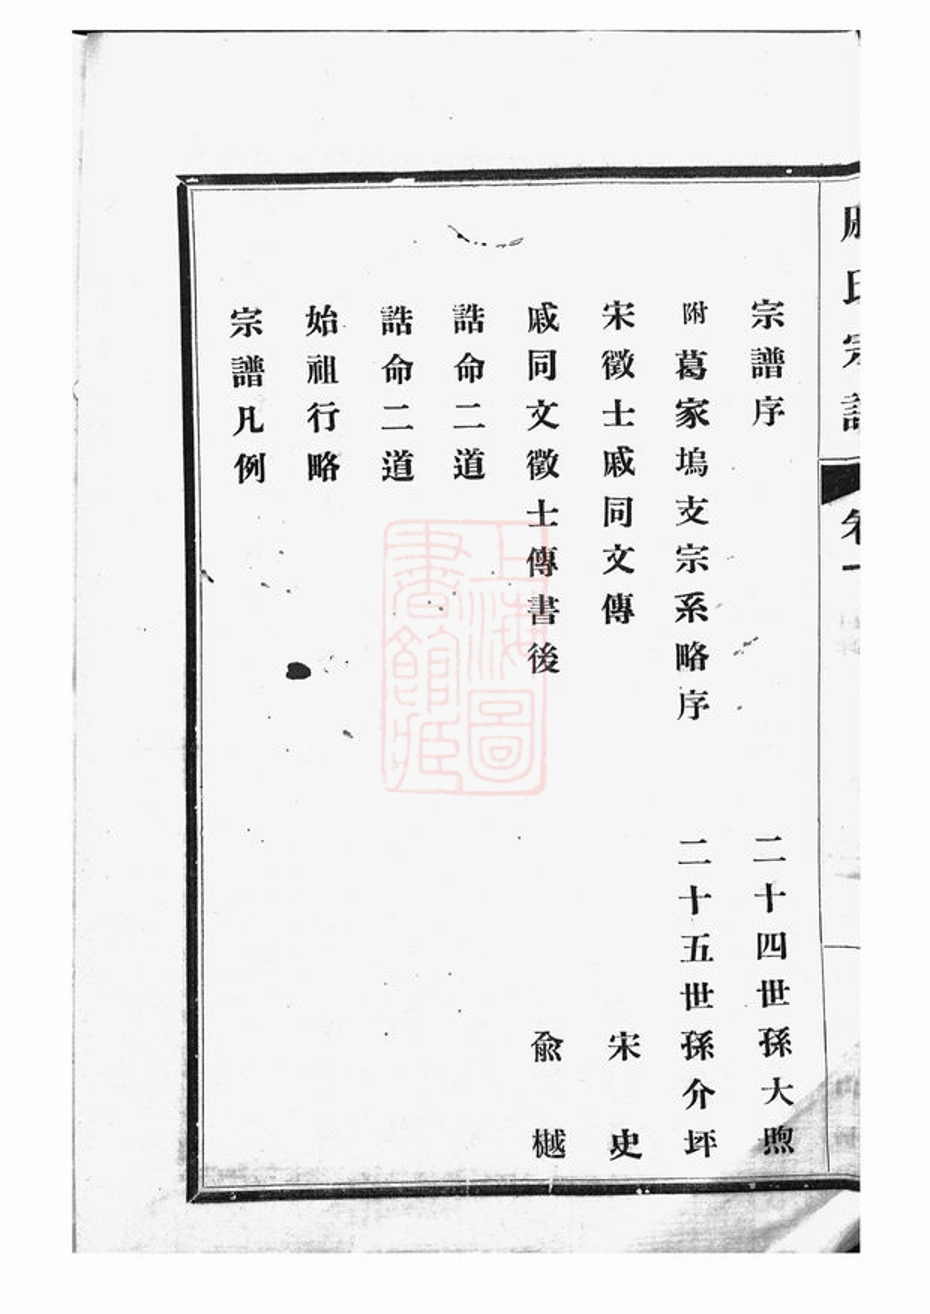 宗譜序　二十四世孫大煦
附葛家塢支宗系略序　二十五世孫介坪
宋徵士戚同文傳　宋史
戚同文徵士傳書後　俞樾
誥命二道
誥命二道
始祖行略
宗譜凡例
上海圖
書館藏